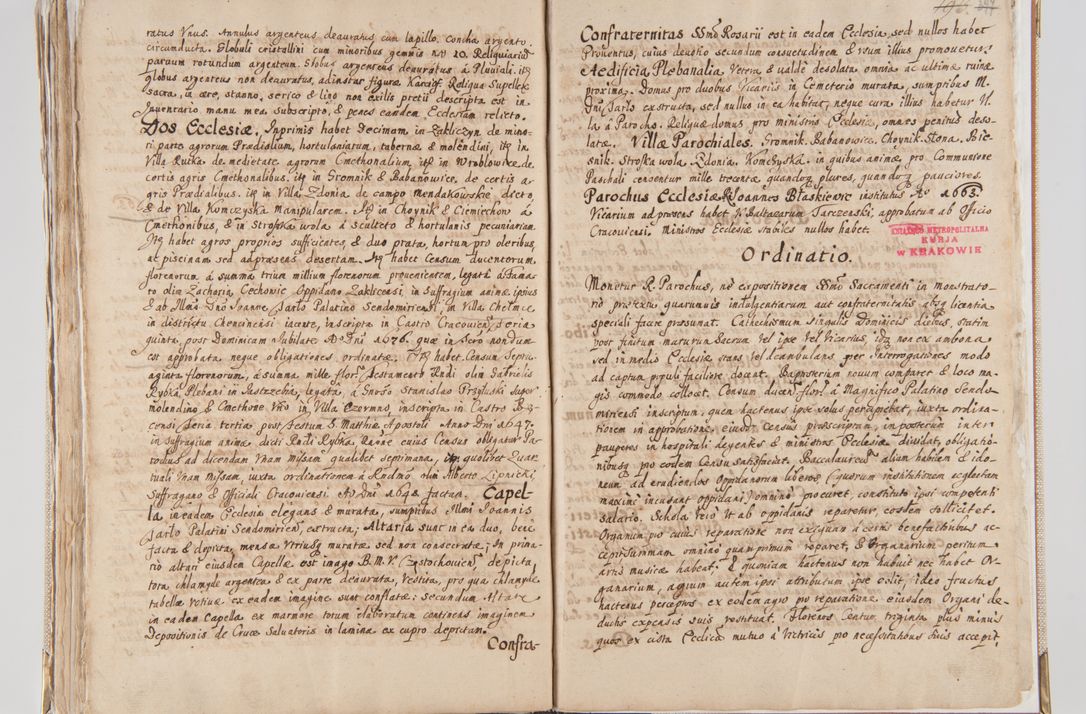 ratus Vnus. Annulus argenteus deauratus cum lapillo. Concha argento
circumducta. Globuli cristallini cum minoribus gemmis nro 20. Reliquiariũ
paruum rotundum argenteum. Globus argenteus deauratus à Pluuiali. itẽ
globus argenteus non deauratus, adinstar figuræ. Reliqua Supellex
sacra, in ære, stanno, serico & lino non exilis pretij descripta est in
Inuentario manu mea subscripto, & penes eandem Ecclesiam relicto.
Dos Ecclesiæ. Inprimis habet Decimam in Zakliczyn de mino-
ri parte agrorum Prædialium, hortulaniarum, tabernæ & molendini, itẽ in
Villa Rutka de medietate agrorum Cmethonalium, itẽ in Wroblowice de
certis agris Cmethonalibus. itẽ in Gromnik & Babanowice, de certis a-
gris Prædialibus. itẽ in Villa Zdonia de campo Mendakowskie dicto,
& de Villa Konczyska Manipularem. Itẽ in Choynik & Ciemiechow à
Cmethonibus, & in Strofka wola à sculteto & hortulanis pecuniariam.
Itẽ habet agros proprios sufficientes, & duo prata, hortum pro oleribus,
at piscinam sed adpræsens desertam. Itẽ habet Censum ducentorum
florenorum à summa trium millium florenorum prouenientem, legatâ à Fama-
to olim Zacharia Cechowic Oppidano Zakliceñ. in suffragium animæ ipsius
& ab Illmo Dno Ioanne Tarlo Palatino Sendomirieñ. in Villa Chelmce
in districtu Chencineñsi iacente, inscripta in Castro Cracouieñ, feria
quinta, post Dominicam Jubilate Ao Dni 1676. quæ in Acro nondum
est approbata neque obligationes ordinatæ. Itẽ habet Censum Septu-
aginta florenorum, à summa mille flor. testamento Rndi olim Gabrielis
Rybka Plebani in Jastrzebia, legata, à Gnroso Stanislao Przyluski super
molendino & Cmethone Vno in Villa Czermna, inscripta in Castro Bie-
censi feria tertia post festum S. Matthiæ Apostoli Anno Dni 1647.
in suffragium animæ dicti Rndi Rybka. Rãone cuius Census obligatur Pa-
rochus ad dicendam Vnam Missam qualibet septimana, itẽ quolibet Quar-
tuali Vnam Missam, iuxta ordinationem à Rndmo olim Alberto Lipnicki,
Suffragano & Officiali Cracouiensi. Ao Dni 1648 factam. Capel-
la in eadem Ecclesia elegans & murata, sumptibus Illmi Ioannis
Tarlo Palatini Sendomirieñ. extructa; Altaria sunt in ea duo, bene
facta & depicta, mensa Vtriusq̃ murata sed non consecrata; In prima-
rio altari eiusdem Capellæ est imago B.M.V. Częstochouieñ. depicta,
tota chlamyde argentea & ex parte deaurata, Vestita, pro qua chlamyde
tabellæ votiuæ ex eadem imagine sunt conflatæ: Secundum Altare
in eadem Capella ex marmore totum elaboratum continens imaginem
Depositionis de Cruce Saluatoris in lamina ex cupro depictam.
Confra-
Confraternitas SSmi Rosarij est in eadem Ecclesia, sed nullos habet
Prouentus, cuius deuotio secundum consuetudinem & vsum illius promouetur.
Aedificia Plebanalia Vetera & valdè desolata omnia ac ultimæ ruinæ
proxima. Domus pro duobus Vicarijs in Cemeterio murata, sumptibus M.
Dni Tarlo exstructa, sed nullus in ea habitat, neque cura illius habetur Vl-
la à Parocho. Reliquæ domus pro ministris Ecclesiæ, omnes penitus deso-
latæ. Villæ Parochiales. Gromnik. Babanowice. Choynik. Słona. Bie-
snik. Strofka wola. Zdonia. Konczyska. in quibus animæ pro Communione
Paschali censentur mille trecentæ quandoq̃ plures, quandoq̃ pauciores.
Parochus Ecclesiæ R. Ioannes Błaskiewic institutus Ao 1663.
Vicarium ad præsens habet R. Baltazarum Jarczenski, approbatum ab Officio
Cracouiensi. Ministros Ecclesiæ stabiles nullos habet.
KSIĄŻĘCO METROPOLITALNA
KURJA
W KRAKOWIE
Ordinatio.
Monetur R. Parochus, ne expositionem SSmi Sacramenti in monstrato-
rio prætextu quarumuis indulgentiarum aut confraternitatis absq̃ licentia
speciali facere præsumat. Cathechismum singulis Dominicis diebus, statim
post finitum maturum Sacrum Vel ipse Vel Vicarius, idq̃ non ex ambona
sed in medio Ecclesiæ stans Vel deambulans per interrogationes modo
ad captum populi faciliore doceat. Baptisterium nouum comparet & loco ma-
gis commodo collocet. Censum ducen. flor. à Magnifico Palatino Sendo-
miriensi inscriptum, quem hactenus ipse solus percipiebat, iuxta ordina-
tionem in approbatione, eiusdẽ census præscriptam, in posterum inter
pauperes in hospitali degentes & ministros Ecclesiæ diuidat, obligatio-
nibusq̃ pro eodem Censu satisfaciat. Baccalaureum alium habilem & ido-
neum ad erudiendos Oppidanorum liberos (quorum institutionem neglectam
maximè incusant oppidani) omninò procuret, constituto ipsi competenti
salario. Schola verò Vt ab oppidanis reparetur, eosdem sollicitet.
Organum pro cuius reparatione non exiguam à certis benefactoribus ac-
cepit summam omninò quamprimum reparet, & Organarium peritum
artis musicæ habeat; & quoniam hactenus non habuit nec habet Or-
ganarium, agrum autem ipsi attributum ipse coluit, ideo fructus
hactenus perceptos ex eodem agro pro reparatione eiusdem Organi de-
ductis expensis suis restituat. Florenos Centum triginta plus minus
quos ex cista Ecclica mutuo à Vitricis pro necessitatibus suis accepit,